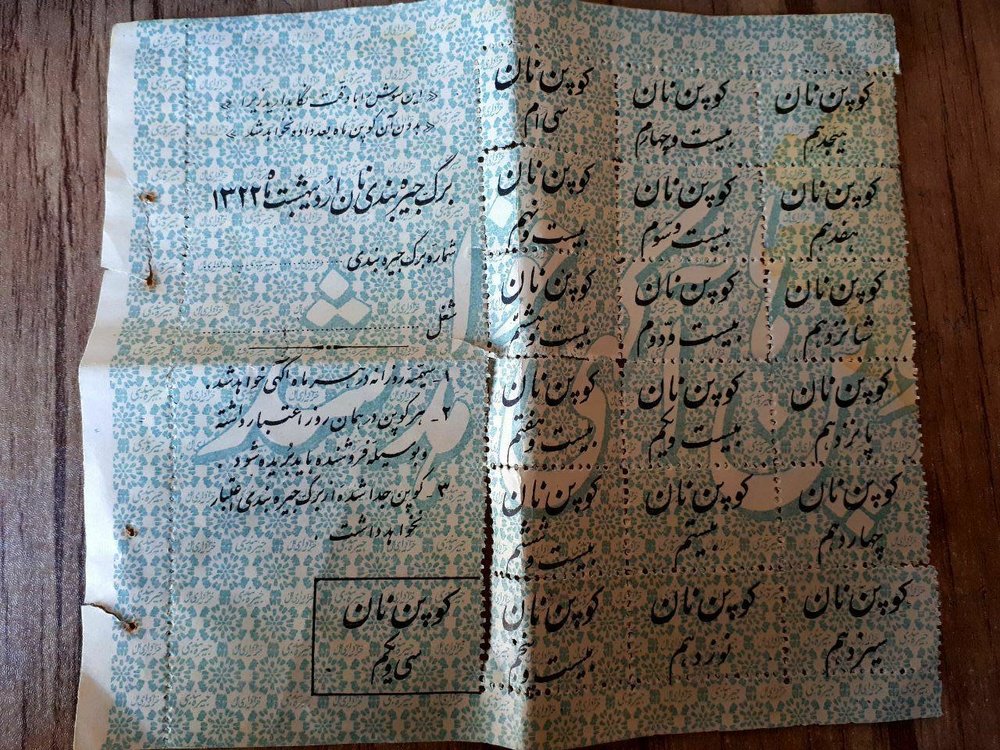 « این سوش را با دقت نگاهدارید زیرا »
« بدون آن کوپن ماه بعد داده نخواهد شد »
برگ جیره بندی نان اردیبهشت ماه ۱۳۲۲
شماره برگ جیره بندی
شغل
۱ - سهمیه روزانه در سر ماه آگهی خواهد شد .
۲ - هر کوپن در همان روز اعتبار داشته
و بوسیله فروشنده باید بریده شود .
۳ - کوپن جدا شده از برگ جیره بندی اعتبار
نخواهد داشت .
کوپن نان
سی و یکم
کوپن نان
هیجدهم
کوپن نان
بیست و چهارم
کوپن نان
سی ام
کوپن نان
هفدهم
کوپن نان
بیست و سوم
کوپن نان
بیست و نهم
کوپن نان
شانزدهم
کوپن نان
بیست و دوم
کوپن نان
بیست و هشتم
کوپن نان
پانزدهم
کوپن نان
بیست و یکم
کوپن نان
بیست و هفتم
کوپن نان
چهاردهم
کوپن نان
بیستم
کوپن نان
بیست و ششم
کوپن نان
سیزدهم
کوپن نان
نوزدهم
کوپن نان
بیست و پنجم